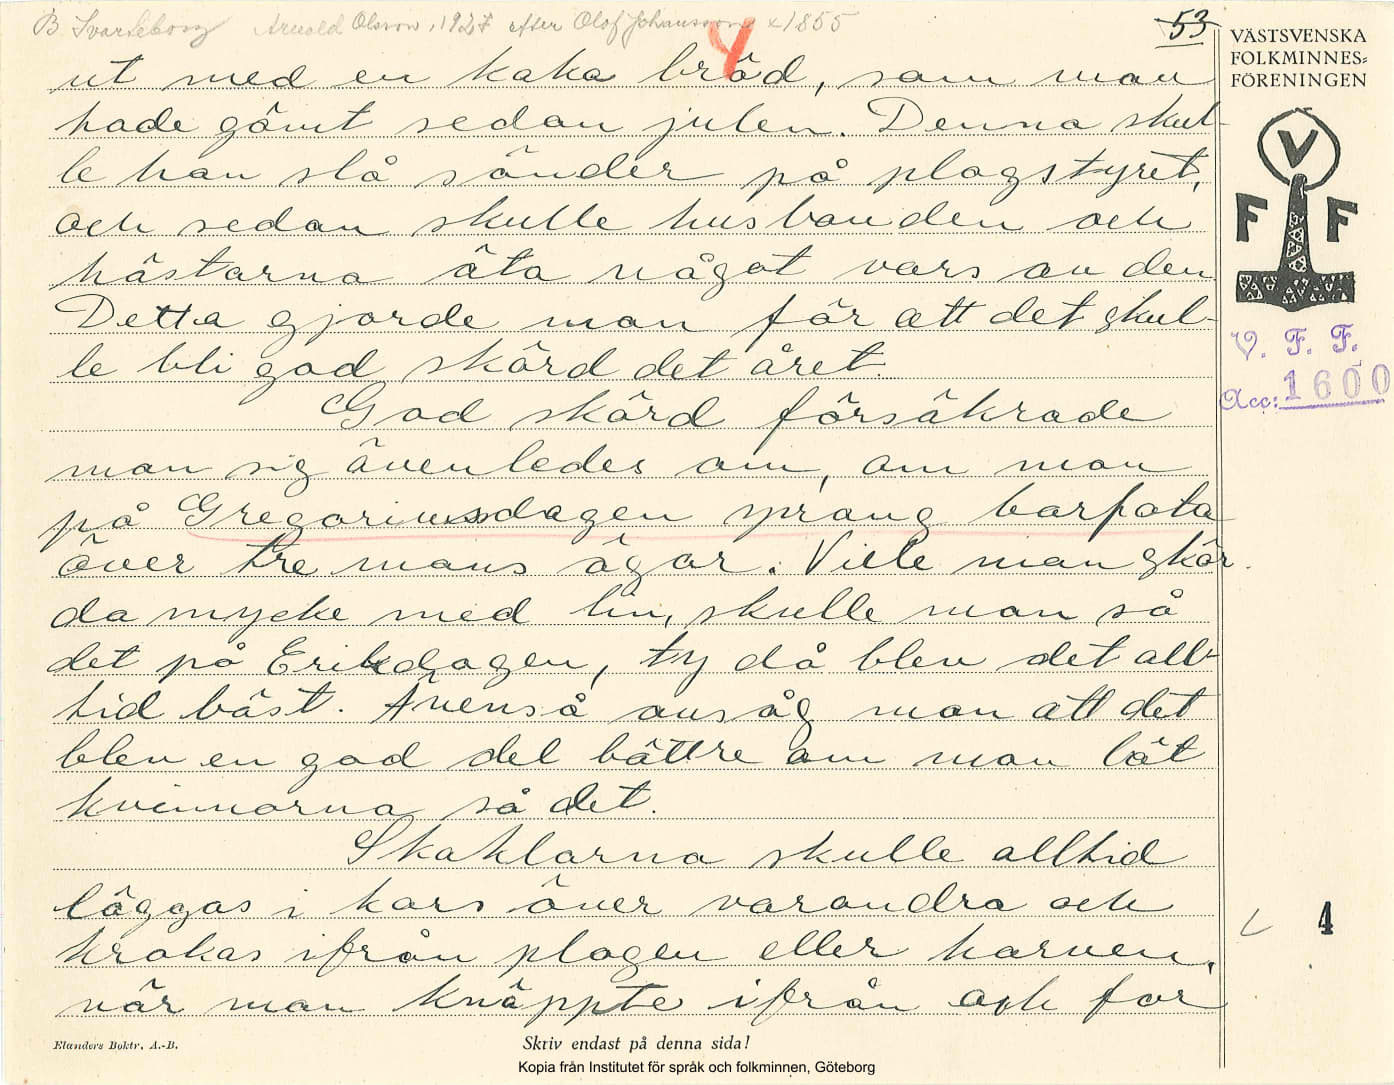 B Svarteborg Arnold Olsson, 1927 efter Olof Johansson f. 1855
53
VÄSTSVENSKA
FOLKMINNES=
FÖRENINGEN
V
F F
V. F. F.
Acc: 1600
4
ut med en kaka bröd, som man
hade gömt sedan julen. Denna skul-
le han slå sönder på plogstyret,
och sedan skulle husbonden och
hästarna äta något vars av den.
Detta gjorde man för att det skul-
le bli god skörd det året.
God skörd försäkrade
man sig ävenledes om, om man
på Gregoriusdagen sprang barfota
över tre mans ägor. Ville man skör-
da mycke med lin, skulle man så
det på Erikdagen, ty då blev det all-
tid bäst. Ävenså ansåg man att det
blev en god del bättre om man lät
kvinnorna så det.
Skaklarna skulle alltid
läggas i kors över varandra och
krokas ifrån plogen eller harven,
när man knäppte ifrån och for
4
Elanders Boktr. A.-B.
Skriv endast på denna sida!
Kopia från Institutet för språk och folkminnen, Göteborg